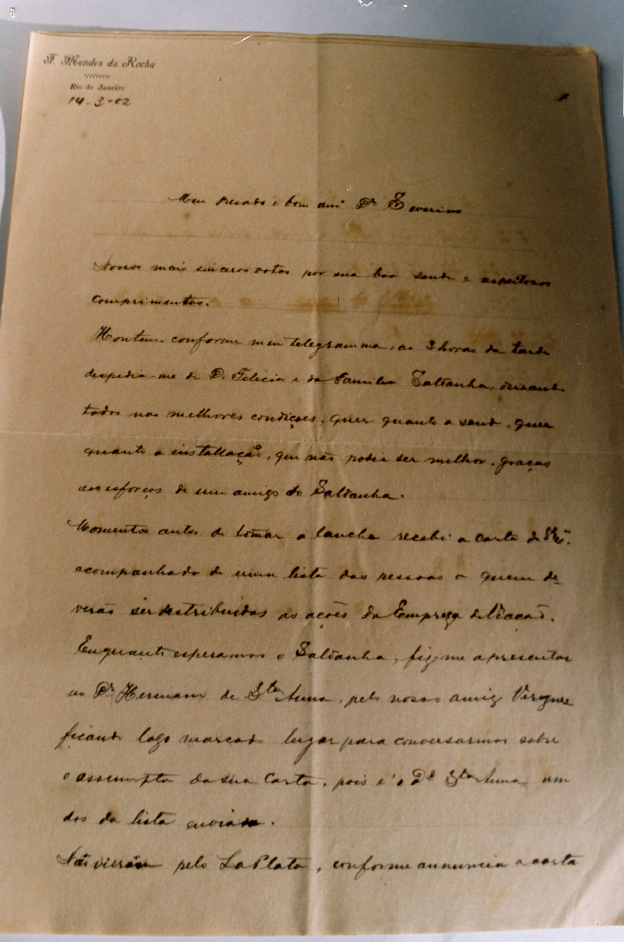 F. Mendes da Rocha
Rio de Janeiro
14-3-02
Meu presado e bom amº Dr. Severino
Nossos mais sinceros votos por sua boa saude e respeitosos
comprimentos.
Hontem, conforme meu telegramma, as 3 horas da tarde
despedia-me de D. Felicia e da familia Saldanha, deixando
todos nas melhores condiçoes, quer quanto a saude, quer
quanto a installação, que não podia ser melhor, graças
aos esforços de um amigo do Saldanha.
Momentos antes de tomar a lancha recebi a carta de
acompanhada de uma lista das pessoas a quem de-
verão ser destribuidas as ações da Empreza de Viação.
Enquanto esperamos o Saldanha, fiz-me apresentar
ao Dr. Hermano de Sta Anna, pelo nosso amigo
ficando logo marcado lugar para conversarmos sobre
o assumpto da sua carta, pois é o Dr. Sta Anna um
dos da lista enviada.
Não vierão pelo La Plata, conforme annuncia a carta